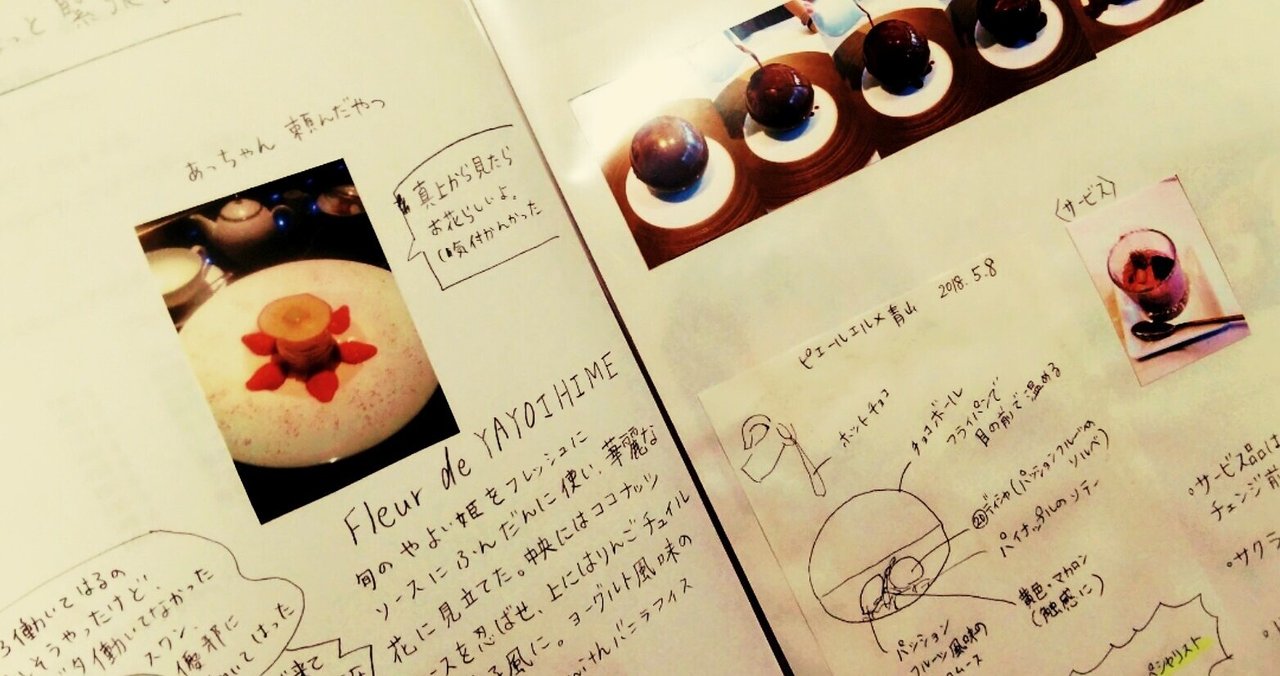 あっちゃん 頼んだやつ
真上から見たら
お花らしいよ。
気付かんかった
Fleur de YAYOIHIME
旬のやよい姫をフレッシュに
ソースにふんだんに使い、華麗な
花に見立てた。中央にはココナッツ
ースを忍ばせ、上にはりんごチュイル
風に。ヨーグルト風味の
バニラアイス
働いてはるの
しそうやったけど、
タ働いてなかった
スワン、
優雅に
いてはった
来て
〈サービス〉
ピエールエルメ青山 2018.5.8
ホットチョコ
チョコボール
フライパンで
目の前で温める
ディシャ(パッションフルーツの
ソルベ)
パイナップルのソテー
黄色いマカロン
(触感に)
パッション
フルーツ風味の
ムース
。サービス品は
チェンジ前
。サクラ
ペシャリスト